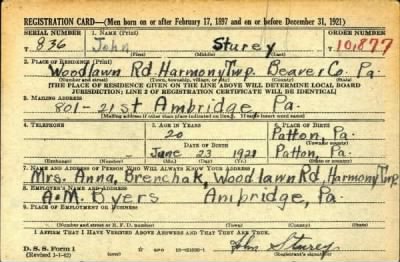 REGISTRATION CARD—(Men born on or after February 17, 1897 and on or before December 31, 1921)
SERIAL NUMBER 1. NAME (Print) ORDER NUMBER
T 836 John Sturey T10,877
(First) (Middle) (Last)
2. PLACE OF RESIDENCE (Print)
Woodlawn Rd. Harmony Twp. Beaver Co. Pa.
(Number and street) (Town, township, village, or city) (County) (State)
[THE PLACE OF RESIDENCE GIVEN ON THE LINE ABOVE WILL DETERMINE LOCAL BOARD
JURISDICTION; LINE 2 OF REGISTRATION CERTIFICATE WILL BE IDENTICAL]
3. MAILING ADDRESS
801-21st Ambridge Pa.
[Mailing address if other than place indicated on line 2. If same insert word same]
4. TELEPHONE 5. AGE IN YEARS 6. PLACE OF BIRTH
20 Patton, Pa.
DATE OF BIRTH (Town or county)
June 23 1921 Patton, Pa.
(Exchange) (Number) (Mo.) (Day) (Yr.) (State or country)
7. NAME AND ADDRESS OF PERSON WHO WILL ALWAYS KNOW YOUR ADDRESS
Mrs. Anna, Brenchak, Woodlawn Rd, Harmony Twp.
8. EMPLOYER'S NAME AND ADDRESS
A.M. Byers Ambridge, Pa.
9. PLACE OF EMPLOYMENT OR BUSINESS
(Number and street or R. F. D. number) (Town) (County) (State)
I AFFIRM THAT I HAVE VERIFIED ABOVE ANSWERS AND THAT THEY ARE TRUE.
D. S. S. Form 1
(Revised 1-1-42) GPO John Sturey
(Registrant's signature)